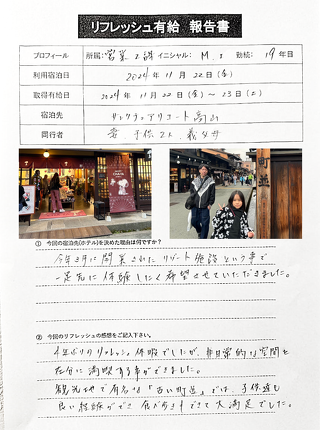 リフレッシュ有給 報告書
プロフィール 所属: 営業2課 イニシャル: M.S 勤続: 19年目
利用宿泊日 2024年11月22日(金)
取得有給日 2024年11月22日(金)～23日(土)
宿泊先 リゾート高山
同行者 妻 子供2人 義父母
① 今回の宿泊先(ホテル)を決めた理由は何ですか?
今年3月に開業されたリゾート施設という事で
一足先に体験したく希望させていただきました。
② 今回のリフレッシュの感想をご記入下さい。
年ぶりのリフレッシュ休暇でしたが、非日常的な空間を
充分に満喫する事ができました。
観光地で有名な「古い町並」では、子供達も
良い経験ができ 食べ歩きもできて大満足でした。